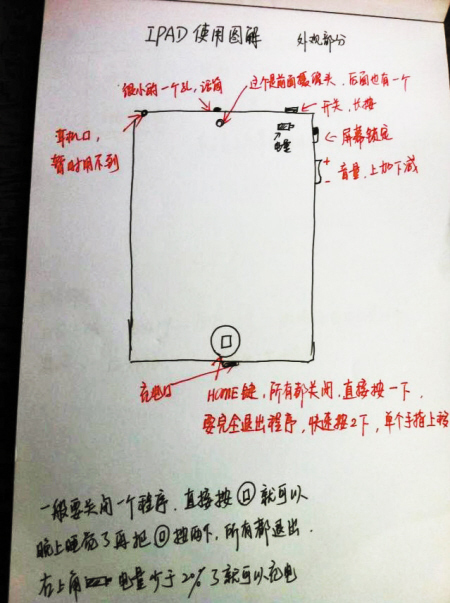 IPAD 使用图解 外观部分
很小的一个孔，话筒
这个是前面摄像头，后面也有一个
开关，长按
耳机口，
暂时用不到
电量
屏幕锁定
+
音量，上加下减
-
充电口
HOME键，所有都关闭，直接按一下，
要完全退出程序，快速按2下，单个手指上移
一般要关闭一个程序，直接按 就可以
晚上睡觉了再把 按两下，所有都退出.
右上角 电量少于20%了就可以充电